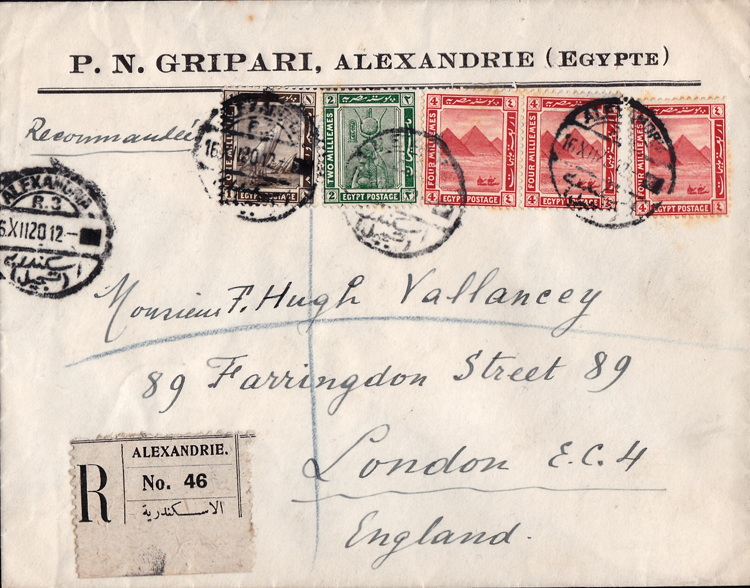 P. N. GRIPARI, ALEXANDRIE (EGYPTE)
Recommandée
ONE MILLIEME
EGYPT POSTAGE
2 ٢
TWO MILLIEMES
EGYPT POSTAGE
4 ٤
FOUR MILLIEMES
EGYPT POSTAGE
4 ٤
FOUR MILLIEMES
EGYPT POSTAGE
4 ٤
FOUR MILLIEMES
EGYPT POSTAGE
ALEXANDRIA
R.3
16XII20 12-
اسكندرية
(تسجيل)
Monsieur F. Hugh Vallancey
89 Farringdon Street 89
London E.C.4
England.
R
ALEXANDRIE.
No. 46
الاسكندرية